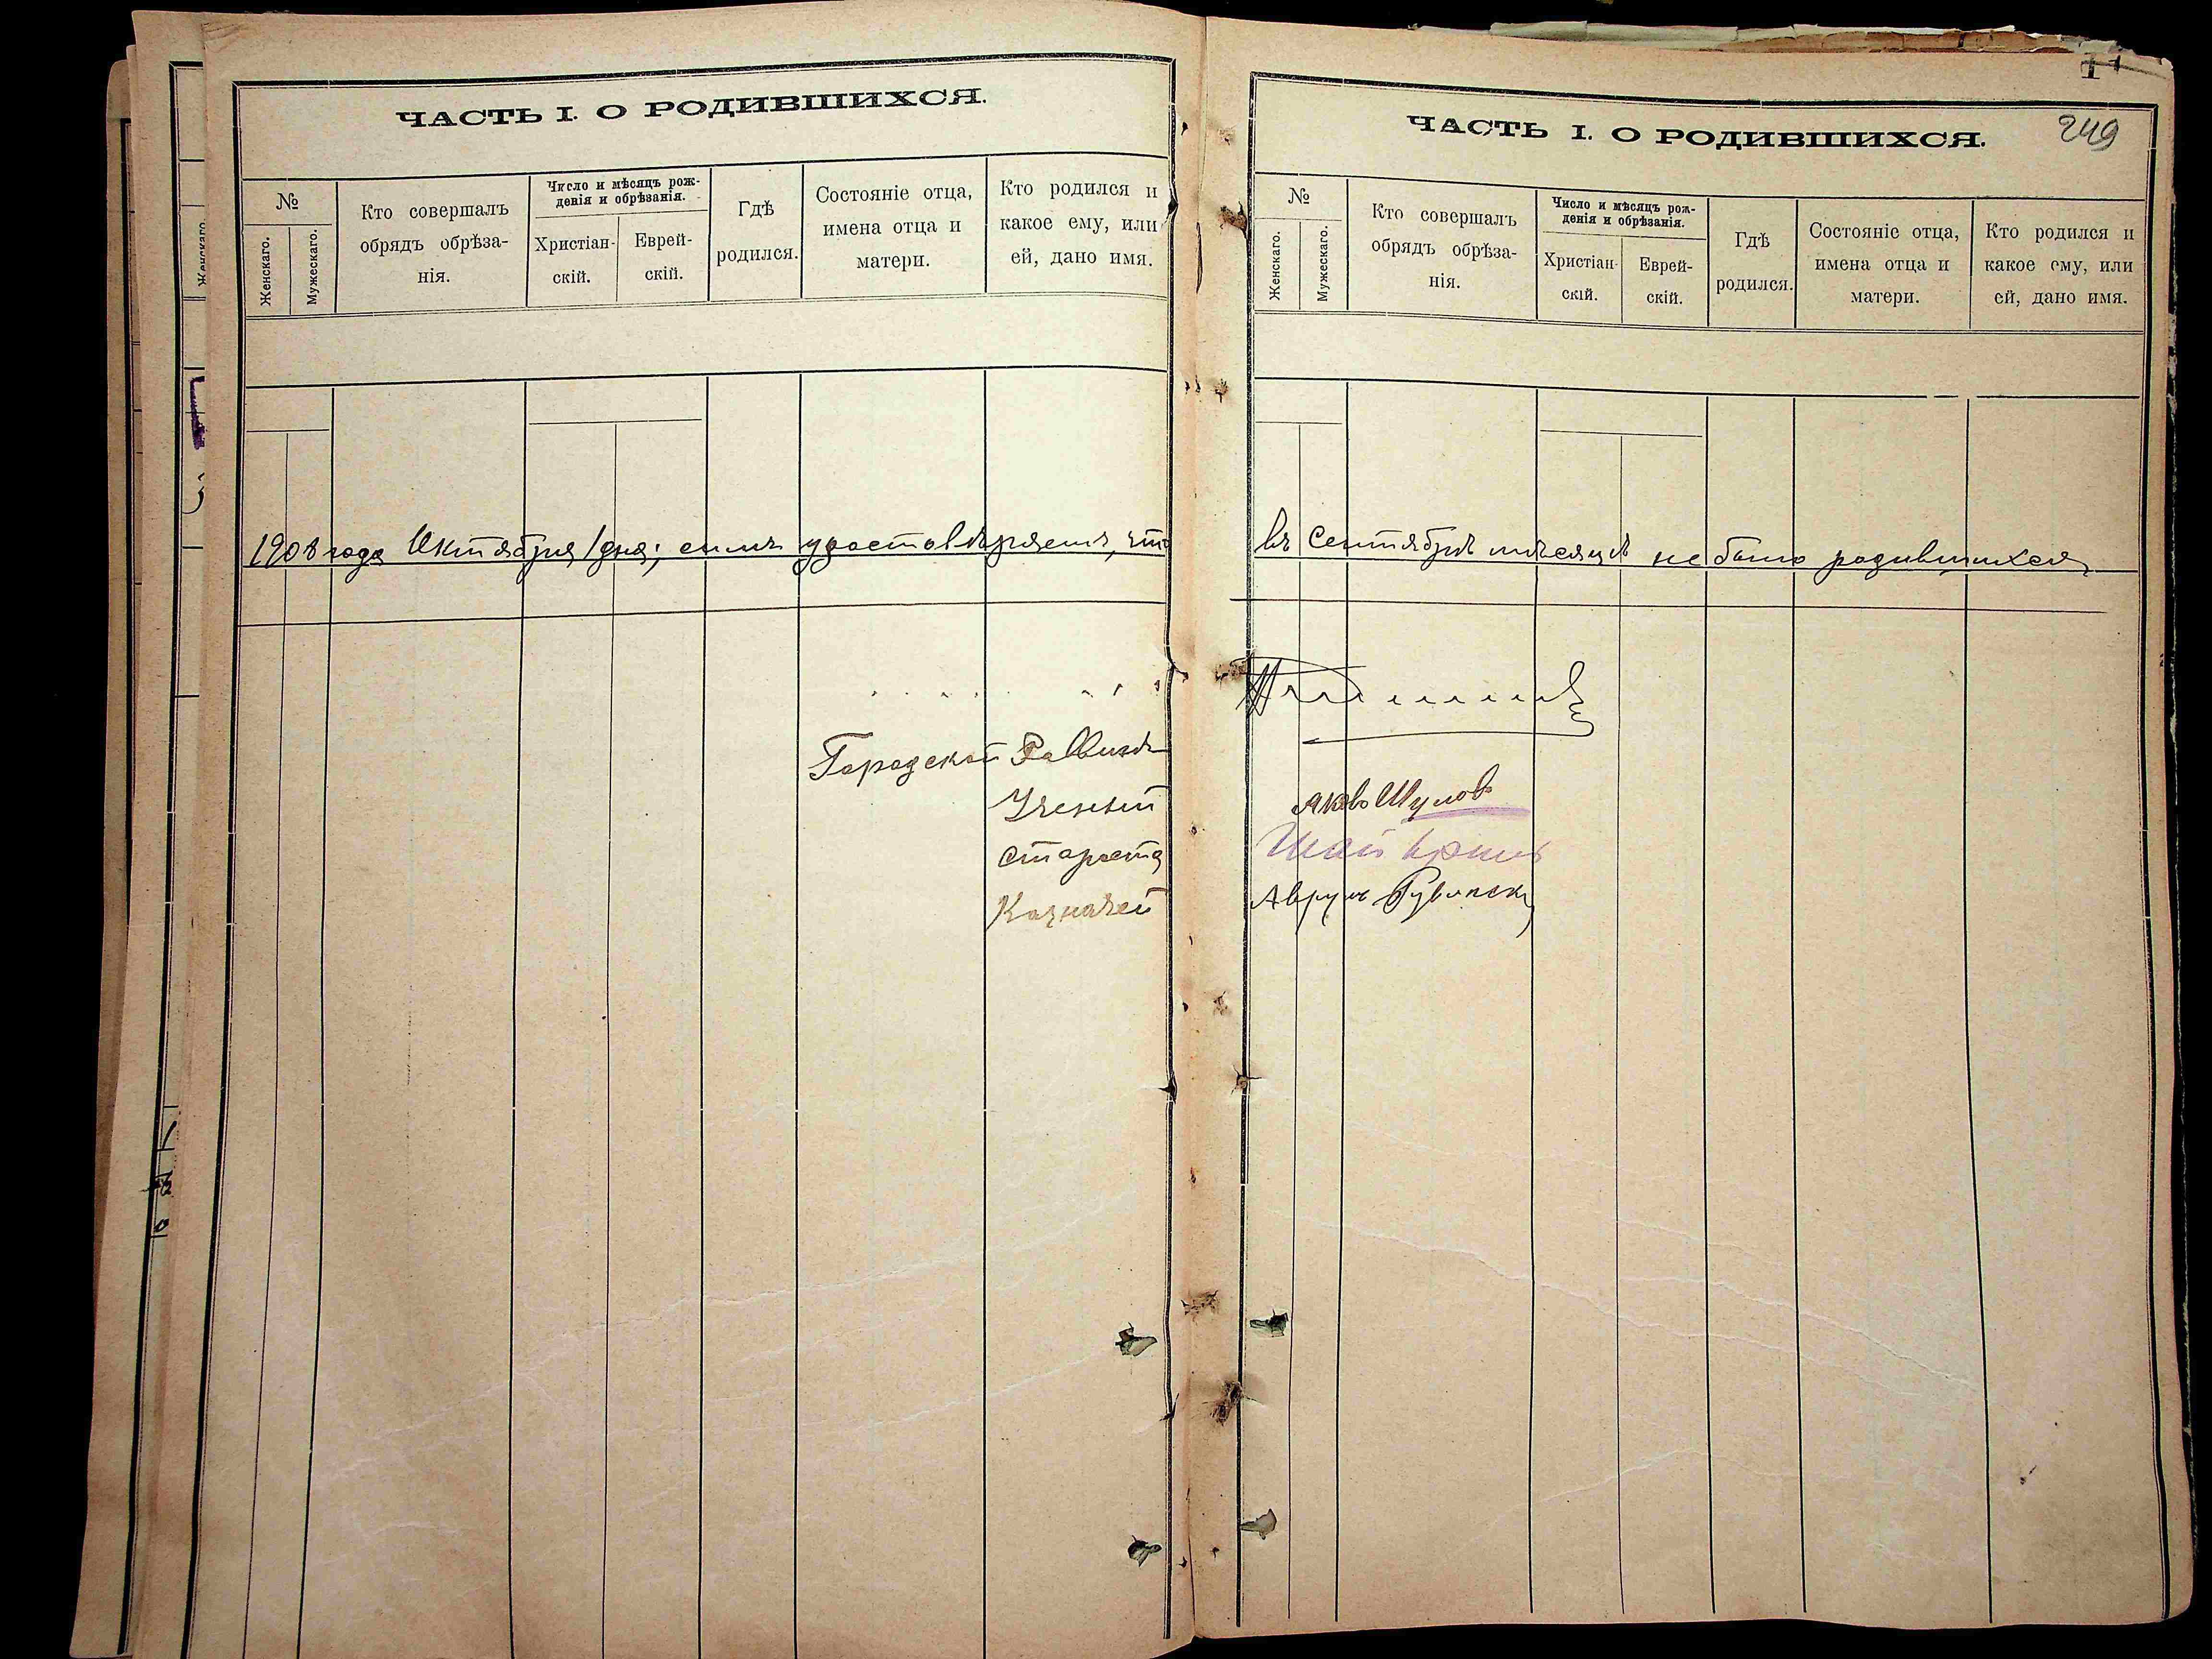 ЧАСТЬ I. О РОДИВШИХСЯ.
№
Женскаго.
Мужескаго.
Кто совершалъ
обрядъ обрѣза-
нія.
Число и мѣсяцъ рож-
денія и обрѣзанія.
Христіан-
скій.
Еврей-
скій.
Гдѣ
родился.
Состояніе отца,
имена отца и
матери.
Кто родился и
какое ему, или
ей, дано имя.
1908 года Октября 1 дня; симъ удостовѣряемъ, что
Городской Раввинъ
Ученый
Староста
Казначей
1
249
ЧАСТЬ I. О РОДИВШИХСЯ.
№
Женскаго.
Мужескаго.
Кто совершалъ
обрядъ обрѣза-
нія.
Число и мѣсяцъ рож-
денія и обрѣзанія.
Христіан-
скій.
Еврей-
скій.
Гдѣ
родился.
Состояніе отца,
имена отца и
матери.
Кто родился и
какое ему, или
ей, дано имя.
въ Сентябрѣ мѣсяцѣ не было родившихся
Шулов
Аврум